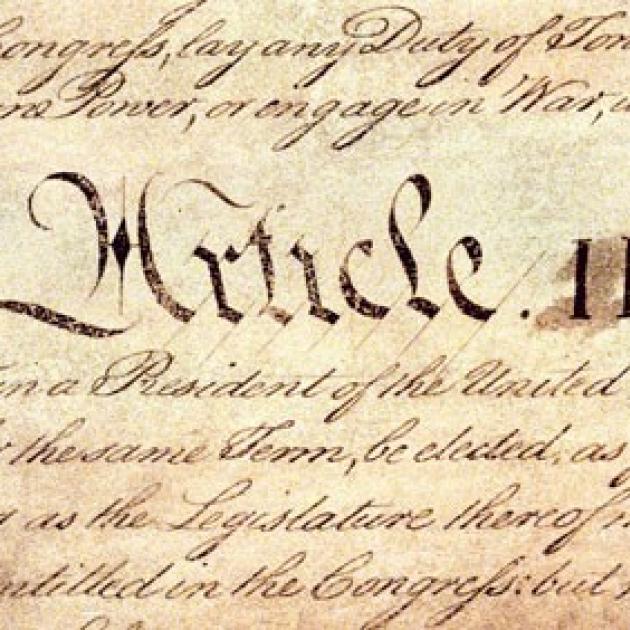 Congreſs, lay any Duty of Ton
Power, or engage in War,
Article. II
in a President of the United
the same Term, be elected, as
as the Legislature thereof
entitled in the Congreſs: but